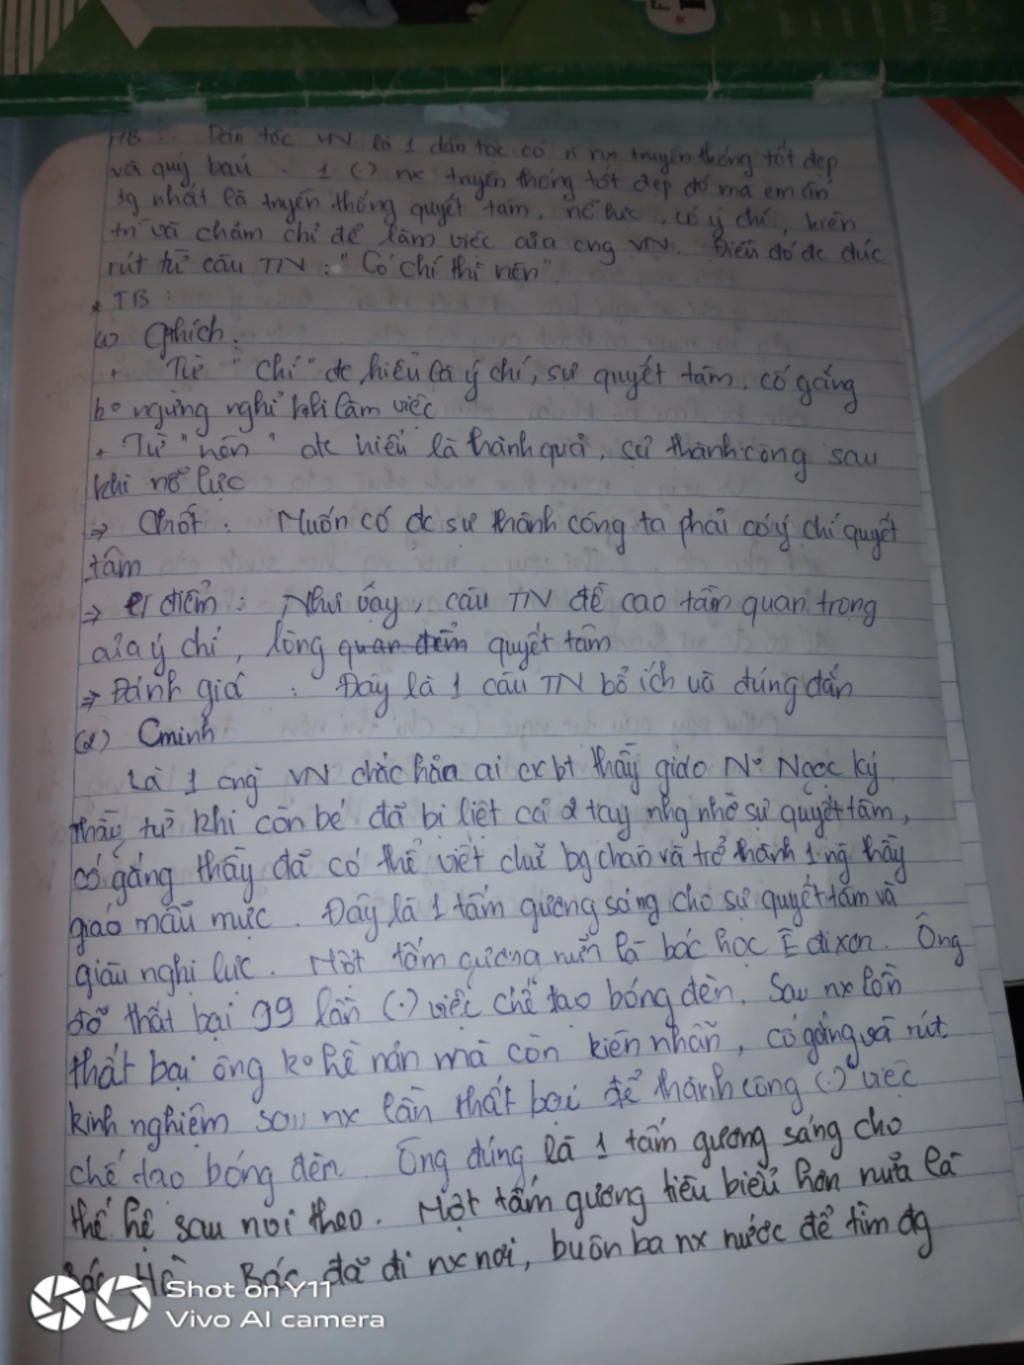 MB: Dân tộc VN là 1 dân tộc có n nx truyền thống tốt đẹp
và quý báu. 1 (.) nx truyền thống tốt đẹp đó mà em ấn
tg nhất là truyền thống quyết tâm, nổ lực, có ý chí, kiên
trì và chăm chỉ để làm việc của cng VN. Điều đó đc đúc
rút từ câu TN: "Có chí thì nên"
* TB:
(1) Gthích:
+ Từ "chí" đc hiểu là ý chí, sự quyết tâm, cố gắng
ko ngừng nghỉ khi làm việc
+ Từ "nên" đc hiểu là thành quả, sự thành công sau
khi nổ lực
=> Chốt: Muốn có đc sự thành công ta phải có ý chí quyết
tâm
=> điểm: Như vậy, câu TN đề cao tầm quan trọng
của ý chí, lòng quan điểm quyết tâm
=> Đánh giá: Đây là 1 câu TN bổ ích và đúng đắn
(2) Cminh
Là 1 cng VN chắc hẳn ai cx bt thầy giáo No Ngọc Ký.
Thầy từ khi còn bé đã bị liệt cả 2 tay nhg nhờ sự quyết tâm,
cố gắng thầy đã có thể viết chữ bg chân và trở thành 1 ng thầy
giáo mẫu mực. Đây là 1 tấm gương sáng cho sự quyết tâm và
giàu nghị lực. Một tấm gương nữa là bác học Êdixơn. Ông
đã thất bại 99 lần (.) việc chế tạo bóng đèn. Sau nx lần
thất bại ông ko hề nản mà còn kiên nhẫn, cố gắng và rút
kinh nghiệm sau nx lần thất bại để thành công (.) việc
chế tạo bóng đèn. Ông đúng là 1 tấm gương sáng cho
thế hệ sau noi theo. Một tấm gương tiêu biểu hơn nữa là
Bác Hồ. Bác đã đi nx nơi, buôn ba nx nước để tìm đg
Shot on Y11
Vivo AI camera